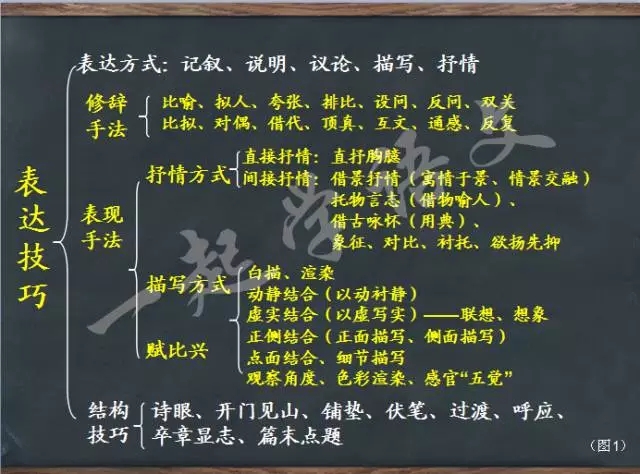 表达技巧
表达方式：记叙、说明、议论、描写、抒情
修辞手法
比喻、拟人、夸张、排比、设问、反问、双关
比拟、对偶、借代、顶真、互文、通感、反复
表现手法
抒情方式
直接抒情：直抒胸臆
间接抒情：借景抒情（寓情于景、情景交融）
托物言志（借物喻人）、
借古咏怀（用典）、
象征、对比、衬托、欲扬先抑
描写方式
白描、渲染
动静结合（以动衬静）
虚实结合（以虚写实）——联想、想象
正侧结合（正面描写、侧面描写）
点面结合、细节描写
观察角度、色彩渲染、感官“五觉”
赋比兴
结构技巧
诗眼、开门见山、铺垫、伏笔、过渡、呼应、
卒章显志、篇末点题
（图1）
一起学语文